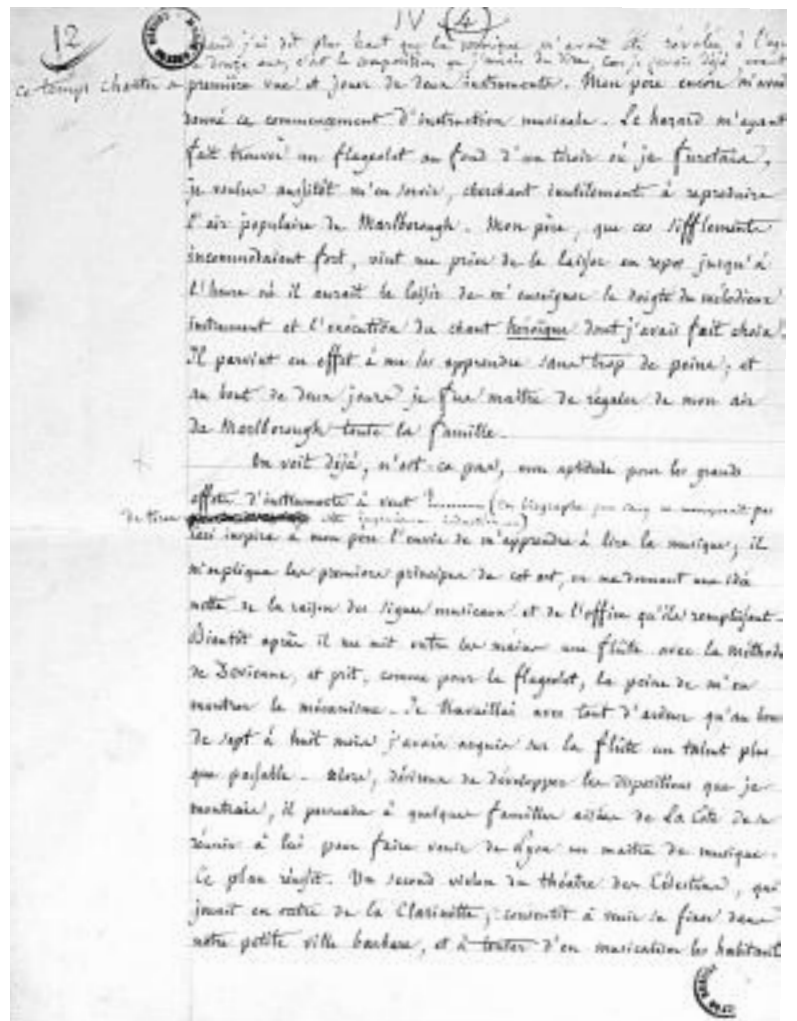 12
IV 4
Quand j'ai dit plus haut que la musique m'avait été révélée à l'âge
de douze ans, c'est la composition que j'aurais dû dire, car je savais déjà avant
ce temps chanter à première vue et jouer de deux instruments. Mon père encore m'avait
donné ce commencement d'instruction musicale. Le hazard m'ayant
fait trouver un flageolet au fond d'un tiroir où je furetais,
je voulus aussitôt m'en servir, cherchant inutilement à reproduire
l'air populaire de Marlborough. Mon père, que ces sifflements
incommodaient fort, vint me prier de le laisser en repos jusqu'à
l'heure où il aurait le loisir de m'enseigner le doigté du mélodieux
instrument et l'exécution du chant héroïque dont j'avais fait choix.
Il parvint en effet à me les apprendre sans trop de peine; et
au bout de deux jours je fus maître de régaler de mon air
de Marlborough toute la famille.
On voit déjà, n'est-ce pas, mon aptitude pour les grands
effets d'instruments à vent ?...... (Un biographe pur sang ne manquerait pas
de tirer cette ingénieuse induction...)
Ceci inspira à mon père l'envie de m'apprendre à lire la musique; il
m'expliqua les premiers principes de cet art, en me donnant une idée
nette de la raison des signes musicaux et de l'office qu'ils remplissent.
Bientôt après il me mit entre les mains une flûte avec la méthode
de Devienne, et prit, comme pour le flageolet, la peine de m'en
montrer le mécanisme. Je travaillai avec tant d'ardeur qu'au bout
de sept à huit mois j'avais acquis sur la flûte un talent plus
que passable. Alors, désireux de développer les dispositions que je
montrais, il persuada à quelques familles aisées de La Côte de se
réunir à lui pour faire venir de Lyon un maître de musique.
Ce plan réussit. Un second violon du théâtre des Célestins, qui
jouait en outre de la Clarinette, consentit à venir se fixer dans
notre petite ville barbare, et à tenter d'en musicaliser les habitants